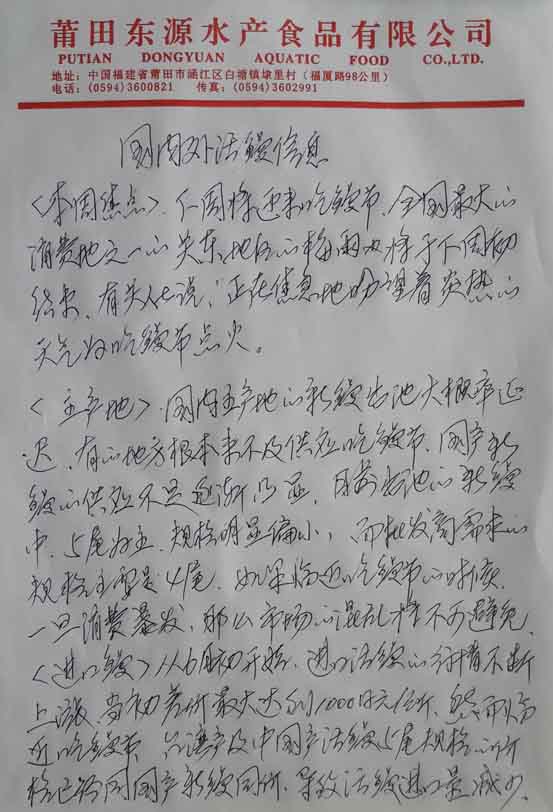 莆田东源水产食品有限公司
PUTIAN DONGYUAN AQUATIC FOOD CO.,LTD.
地址：中国福建省莆田市涵江区白塘镇埭里村（福厦路98公里）
电话：(0594)3600821 传真：(0594)3602991
国内外活鳗信息
<本周焦点>、下周将迎来吃鳗节、全国最大的
消费地之一的关东地区的梅雨也将于下周初
结束、有关人士说：正在焦急地盼望着炎热的
天气为吃鳗节点火。
<主产地>、国内主产地的新鳗出池大概率延
迟、有的地方根本来不及供应吃鳗节、国产新
鳗的供应不足逐渐凸显、目前出池的新鳗
中、5尾为主、规格明显偏小，而批发商需求的
规格主要是4尾、如果临近吃鳗节的时候、
一旦消费暴发、那么市场的混乱将不可避免、
<进口鳗>从6月初开始、进口活鳗的行情不断
上涨、当初差价最大达到1000日元/公斤、然而临
近吃鳗节、台湾产及中国产活鳗5尾规格的价
格已经同国产新鳗同价、导致活鳗进口量减少、